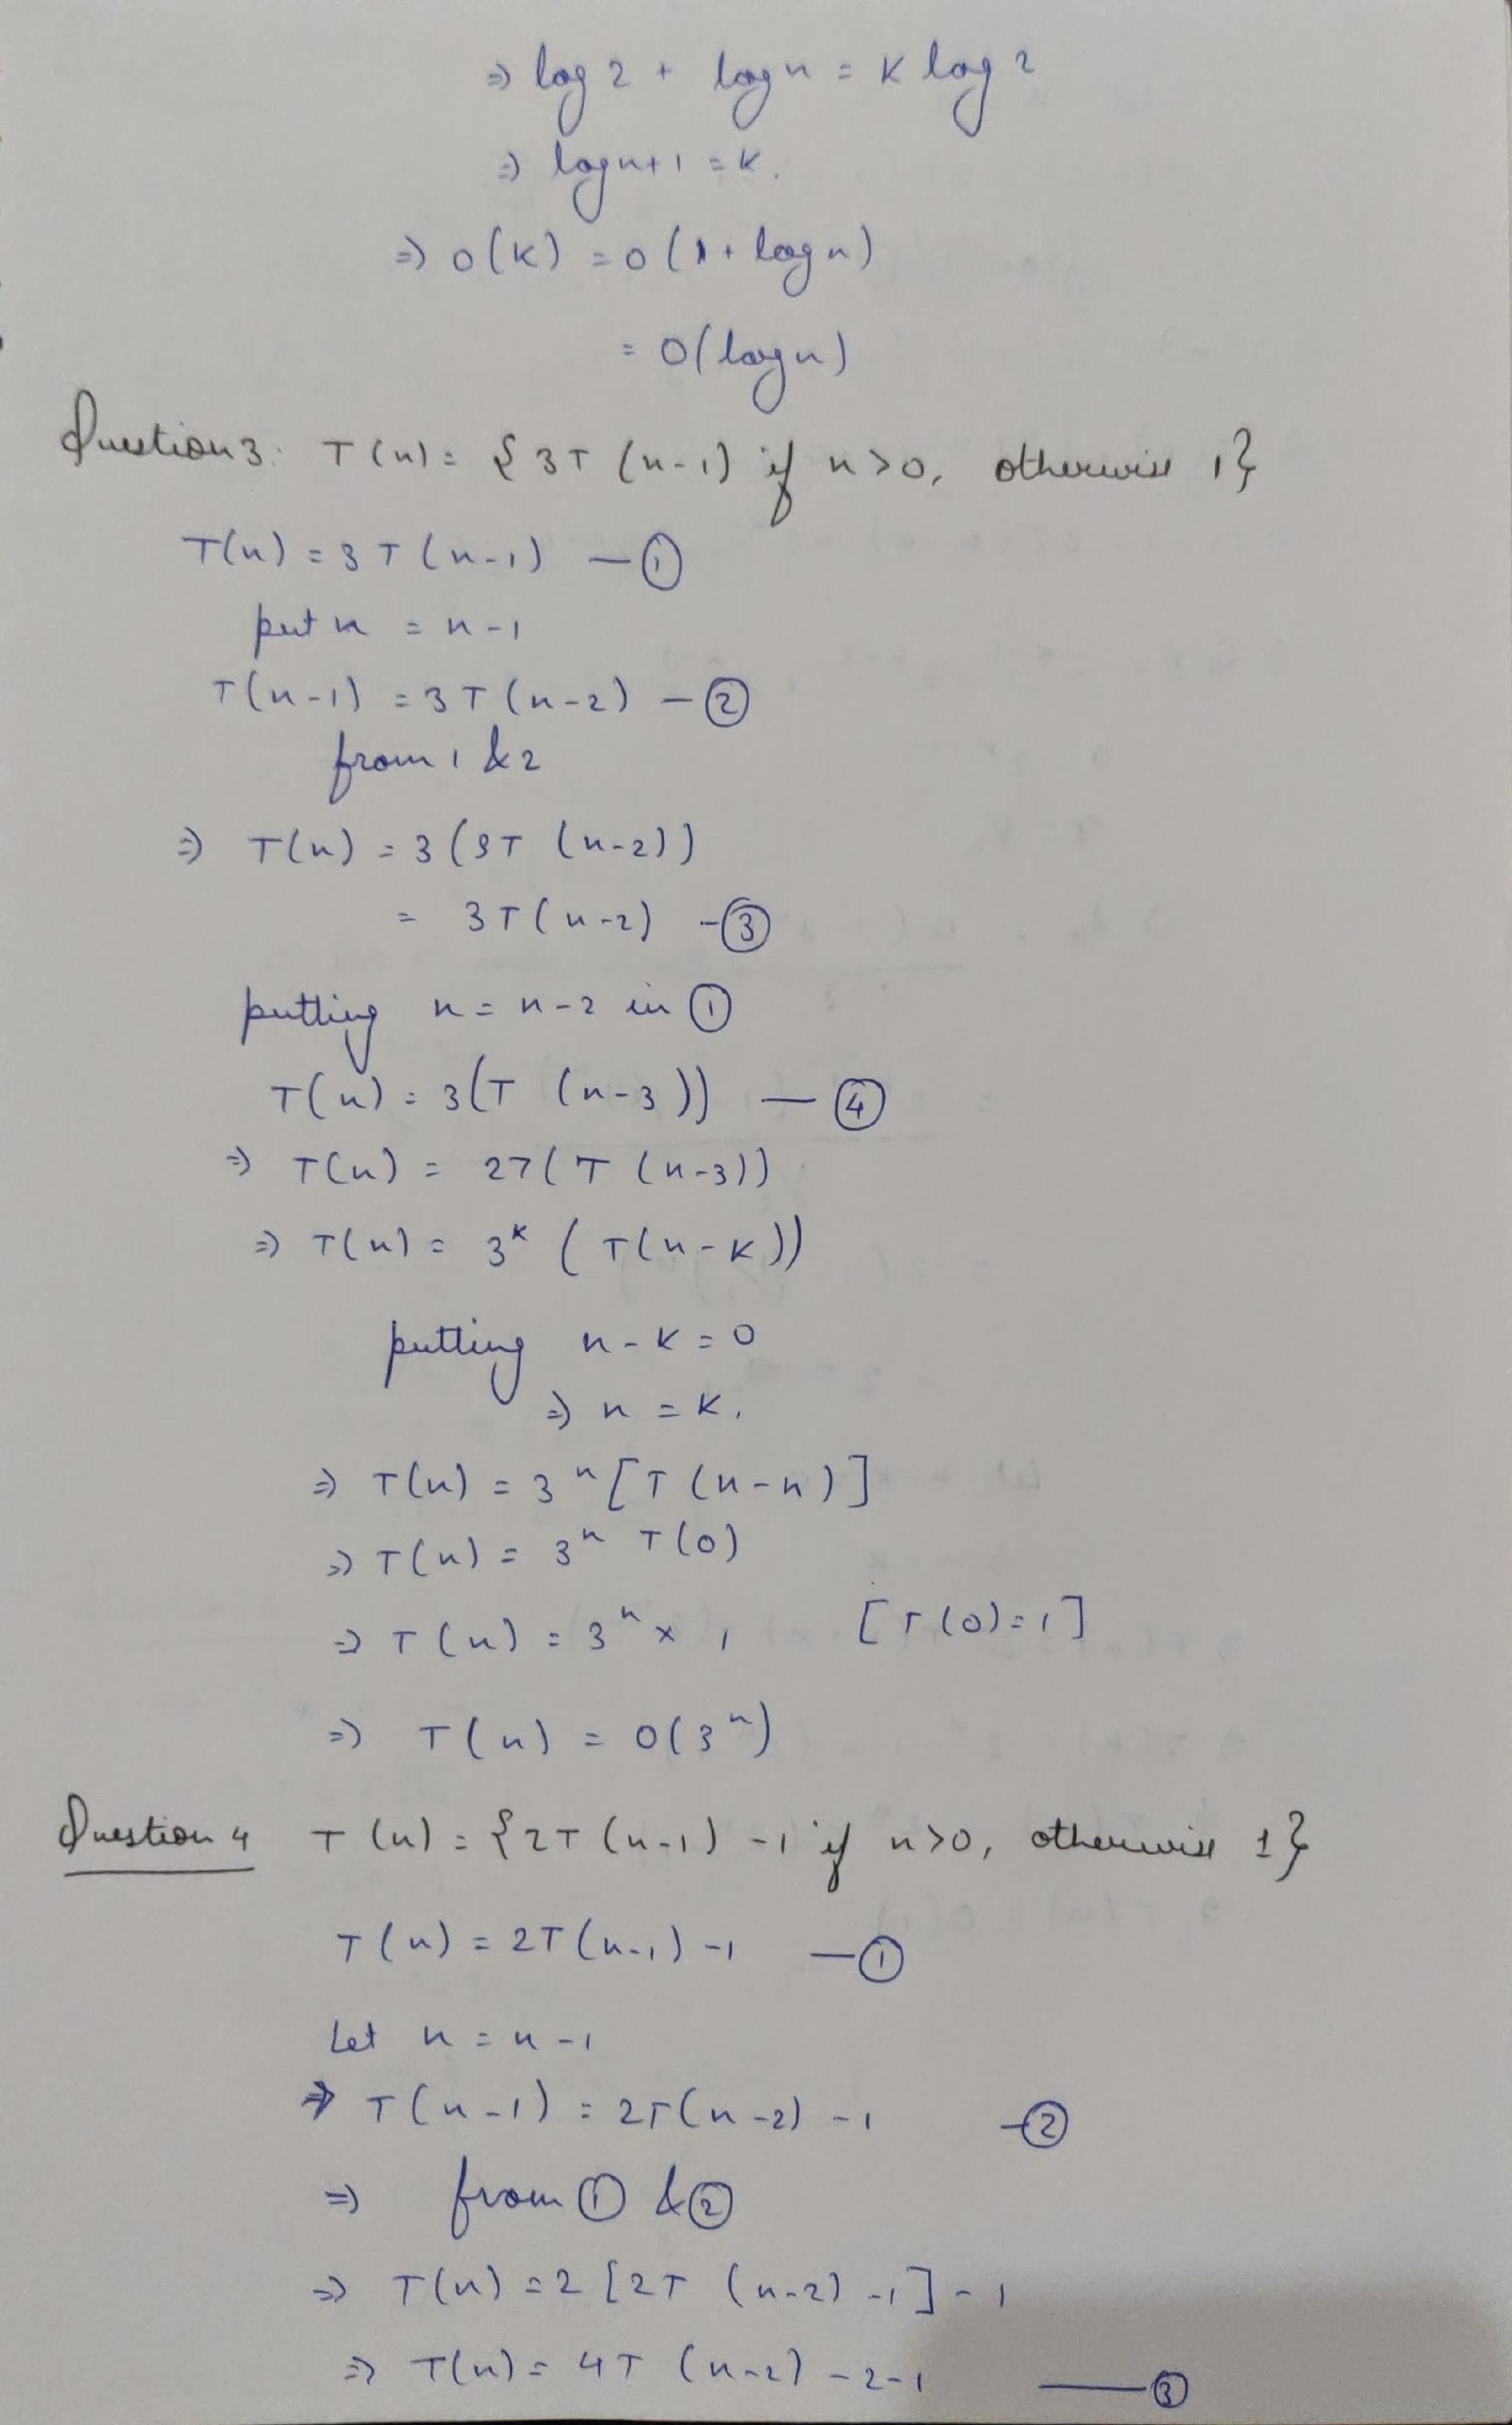 ⇒ log 2 + log n = K log 2
⇒ log n + 1 = K.
⇒ O(K) = O(1 + log n)
= O(log n)
Question 3: T(n) = {3T(n-1) if n>0, otherwise 1}
T(n) = 3T(n-1) —①
put n = n-1
T(n-1) = 3T(n-2) —②
from 1 & 2
⇒ T(n) = 3(3T (n-2))
= 3T(n-2) -③
putting n = n-2 in ①
T(n) = 3(T (n-3)) —④
⇒ T(n) = 27(T (n-3))
⇒ T(n) = 3ᴷ (T(n-K))
putting n-K=0
⇒ n = K.
⇒ T(n) = 3ⁿ [T (n-n)]
⇒ T(n) = 3ⁿ T(0)
⇒ T(n) = 3ⁿ × 1 [T(0)=1]
⇒ T(n) = O(3ⁿ)
Question 4 T(n) = {2T(n-1)-1 if n>0, otherwise 1}
T(n) = 2T(n-1)-1 —①
Let n = n-1
⇒ T(n-1) = 2T(n-2)-1 -②
⇒ from ① & ②
⇒ T(n) = 2[2T (n-2)-1]-1
⇒ T(n) = 4T (n-2)-2-1 —③